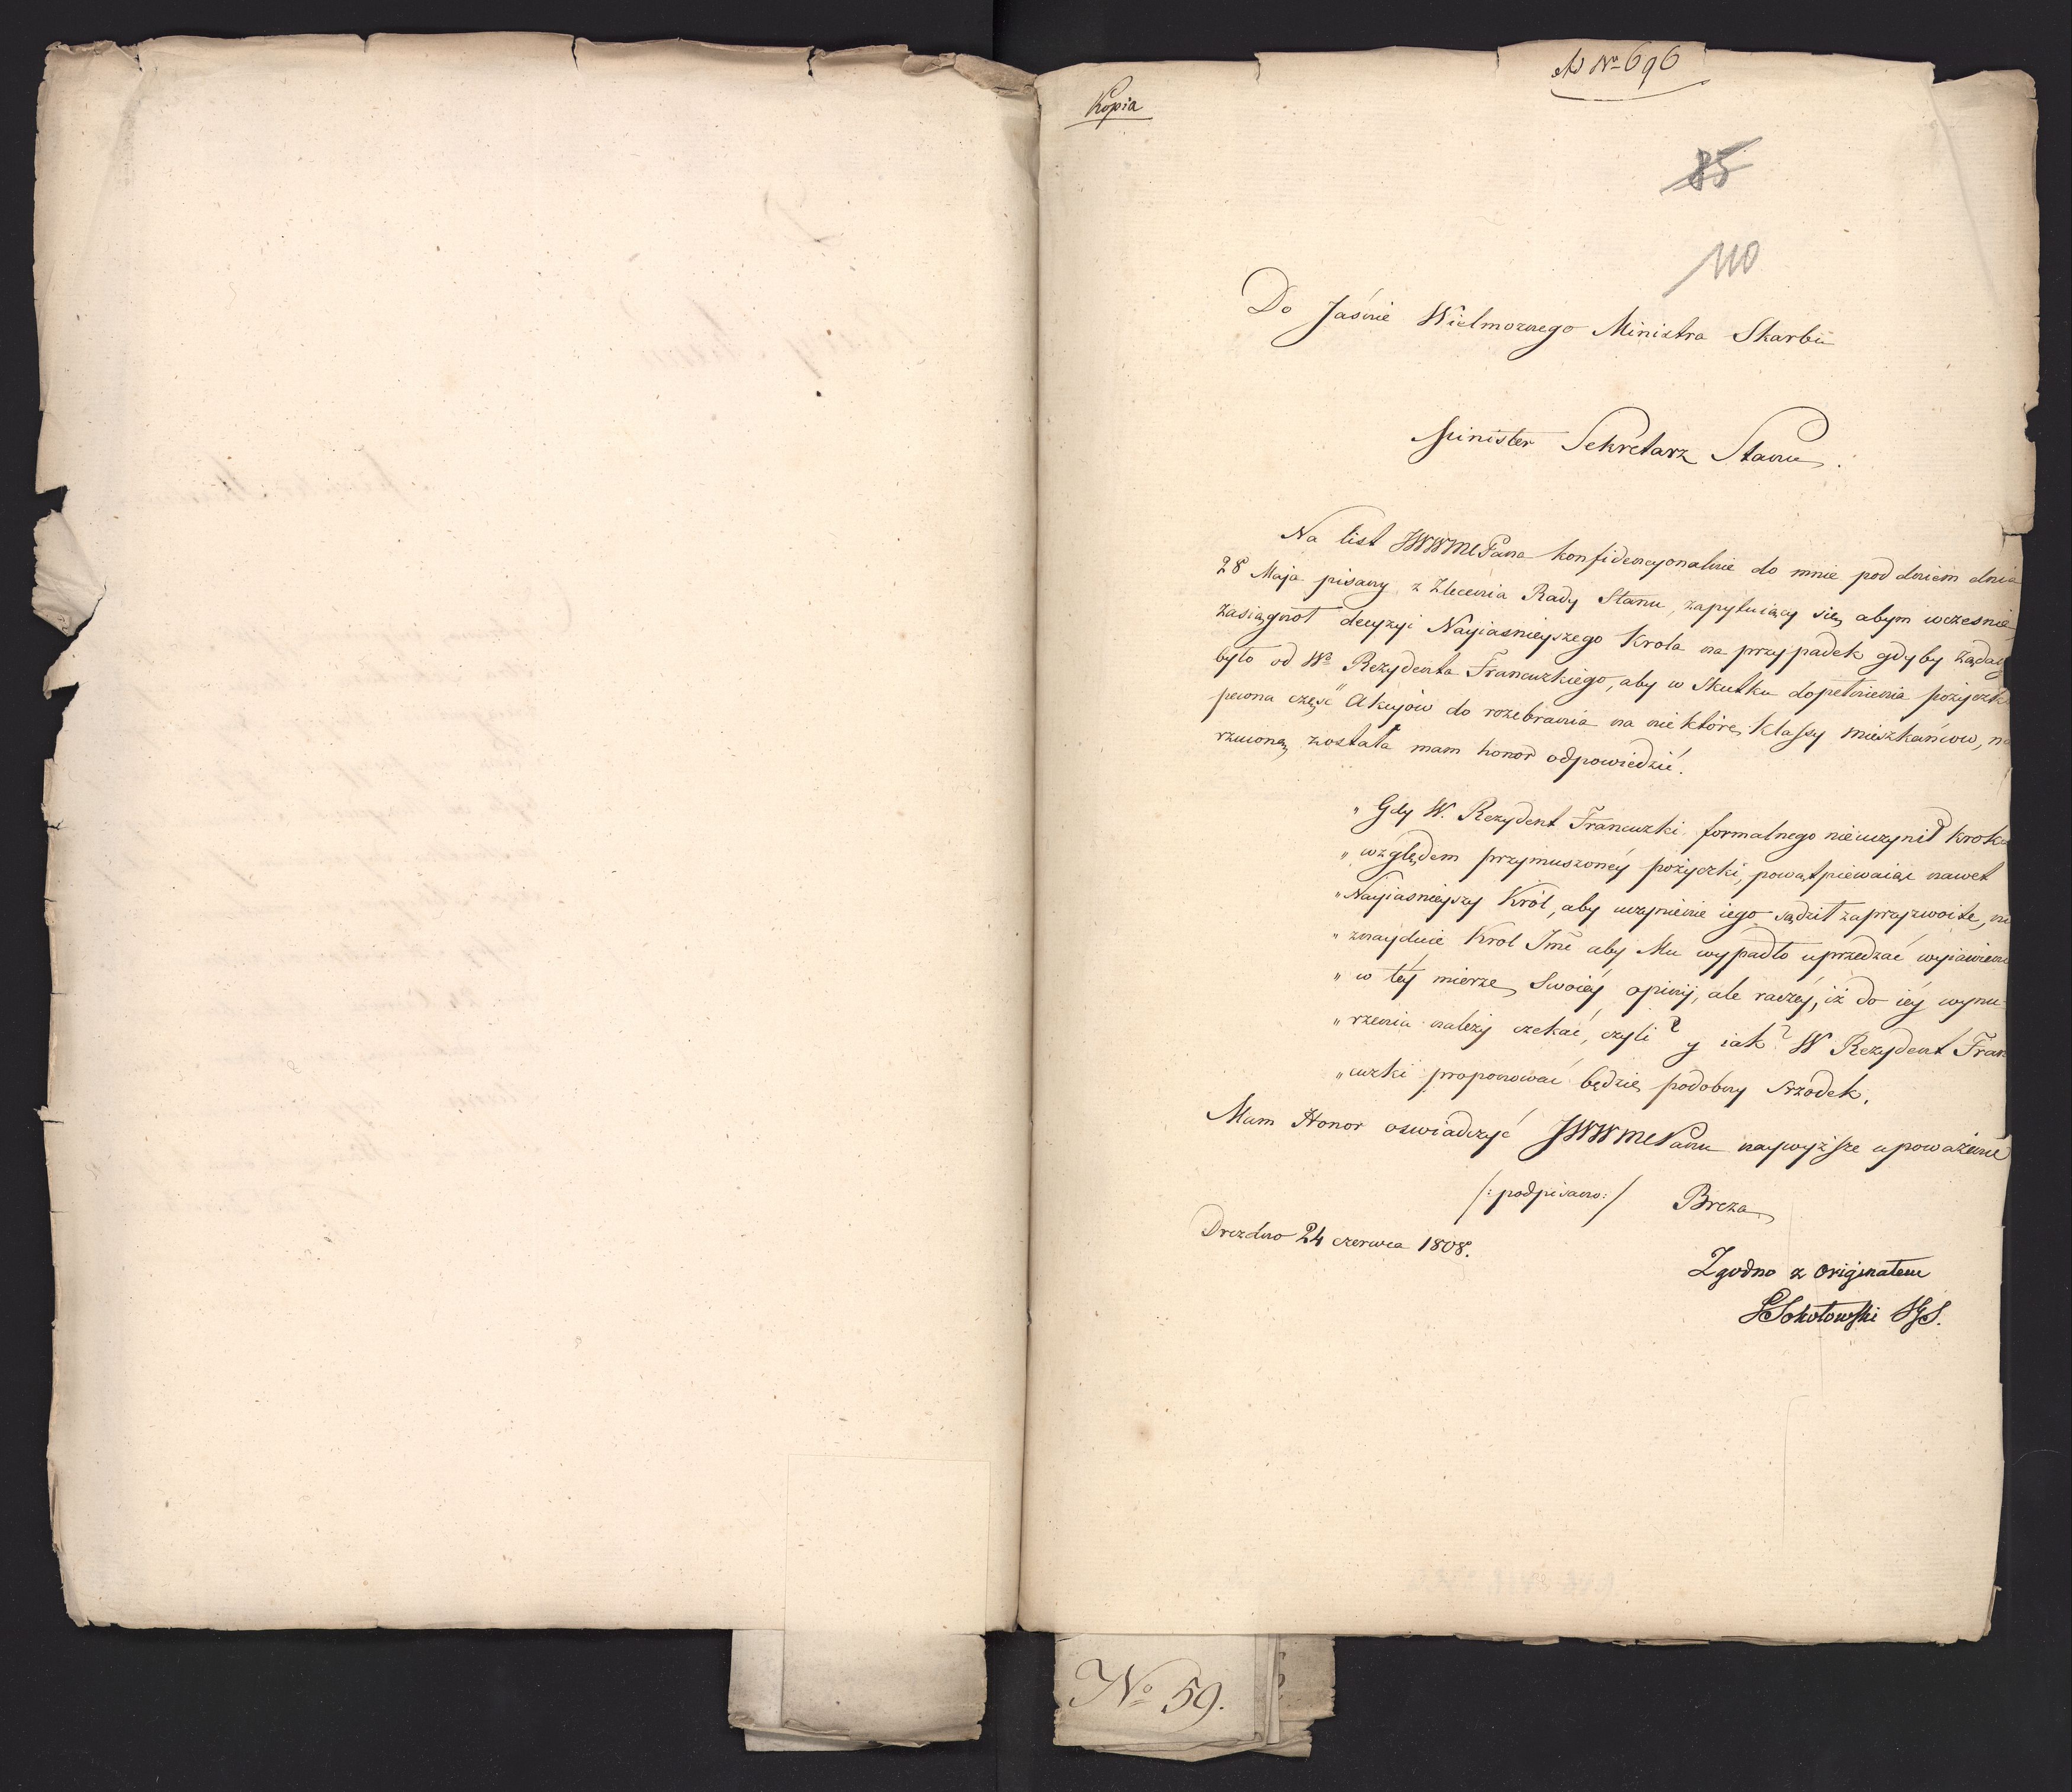 Ad No 696
Kopia
85
110
Do Jaśnie Wielmoznego Ministra Skarbu
Minister Sekretarz Stanu.
Na list JWWMCPana konfidencyonalnie do mnie pod dniem dnia
28 Maja pisany z Zlecenia Rady Stanu, zapytuiący się, abym wczesnie
zasiągnoł decyzyi Nayiasnieyszego Krola na przypadek gdyby żądan
było od Wo Rezydenta Francuzkiego, aby w Skutku dopełnienia pożyczki
pewna częśc Akcyiow do rozebrania na niektóre Klassy mieszkańcow, na
rzucona, została mam honor odpowiedzić.
„ Gdy W. Rezydent Francuzki formalnego nieuczynił kroku
„ względem przymuszonéy pożyczki, powątpiewaiąc nawet
„ Nayiasnieyszy Król, aby uczynienie iego sądził zaprzyzwoite, nie
„ znayduie Krol Jmć aby Mu wypadło uprzedzać wyiawienie
„ w téy mierze Swoiéy opinij, ale raczéy, iż do iéy wynu-
„ rzenia należy czekać, czyli? y iak? W Rezydent Fran
„ cuzki proponować będzie podobny Srzodek.
Mam Honor oswiadczyć JWWMCPanu naywyższe upoważenie
/: podpisano: / Breza
Drezdno 24 czerwca 1808.
Zgodno z Originałem
Sokołowski
No 59.